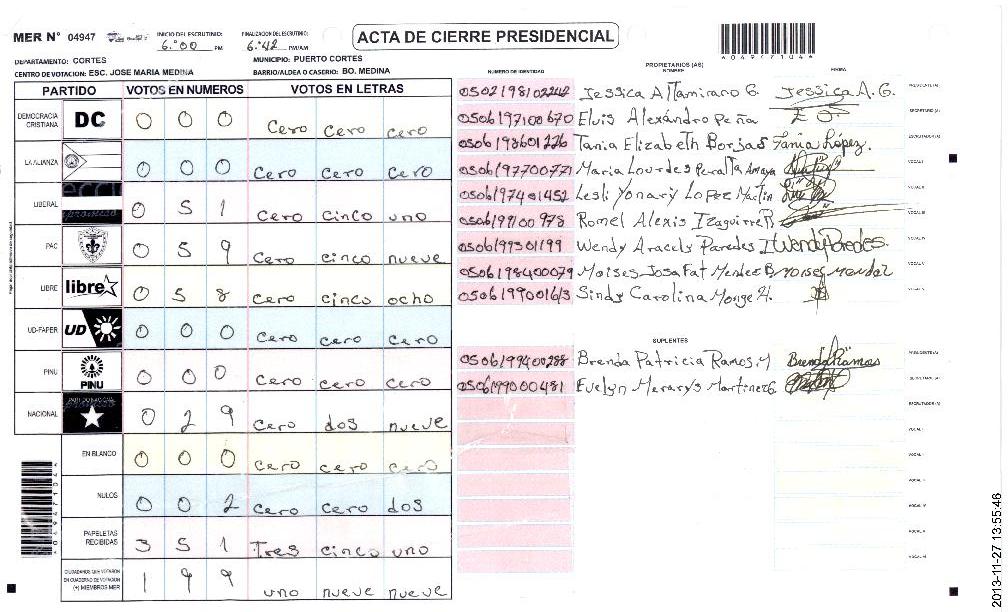 MER N° 04947 INICIO DEL ESCRUTINIO: 6:00 PM FINALIZACION DEL ESCRUTINIO: 6:42 PM/AM ACTA DE CIERRE PRESIDENCIAL
DEPARTAMENTO: CORTES MUNICIPIO: PUERTO CORTES
CENTRO DE VOTACION: ESC. JOSE MARIA MEDINA BARRIO/ALDEA O CASERIO: BO. MEDINA
PARTIDO VOTOS EN NUMEROS VOTOS EN LETRAS
DEMOCRACIA CRISTIANA DC 0 0 0 Cero Cero cero
LA ALIANZA 0 0 0 Cero Cero Cero
LIBERAL 0 5 1 Cero Cinco uno
PAC 0 5 9 Cero cinco nueve
LIBRE libre 0 5 8 Cero cinco ocho
UD-FAPER UD 0 0 0 Cero Cero Cero
PINU PINU 0 0 0 Cero Cero Cero
NACIONAL 0 2 9 Cero dos nueve
EN BLANCO 0 0 0 Cero cero cero
NULOS 0 0 2 Cero Cero dos
PAPELETAS RECIBIDAS 3 5 1 Tres cinco uno
CIUDADANOS QUE VOTARON EN CUADERNO DE VOTACION (+) MIEMBROS MER 1 9 9 uno nueve nueve
PROPIETARIOS (AS)
NUMERO DE IDENTIDAD NOMBRE FIRMA
Jessica Altamirano G. Jessica A.G. PRESIDENTE(A)
0506197100670 Elvis Alexandro Peña SECRETARIO(A)
0506198601226 Tania Elizabeth Borjas Tania López. ESCRUTADOR(A)
0506197700771 Maria Lourdes Peralta Amaya VOCAL I
0506197401452 Lesli Yonary Lopez Martin VOCAL II
0506199100978 Romel Alexis Izaguirre B VOCAL III
Wendy Aracely Paredes I Wendy Paredes. VOCAL IV
0506198400079 Moises Josafat Mendez B Moises Mendez VOCAL V
0506199001613 Sindy Carolina Monge H.
SUPLENTES
0506199400288 Brenda Patricia Ramos M Brenda Ramos PRESIDENTE(A)
0506199000481 Evelyn Merarys Martinez G SECRETARIO(A)
ESCRUTADOR(A)
VOCAL I
VOCAL II
2013-11-27 13:55:46